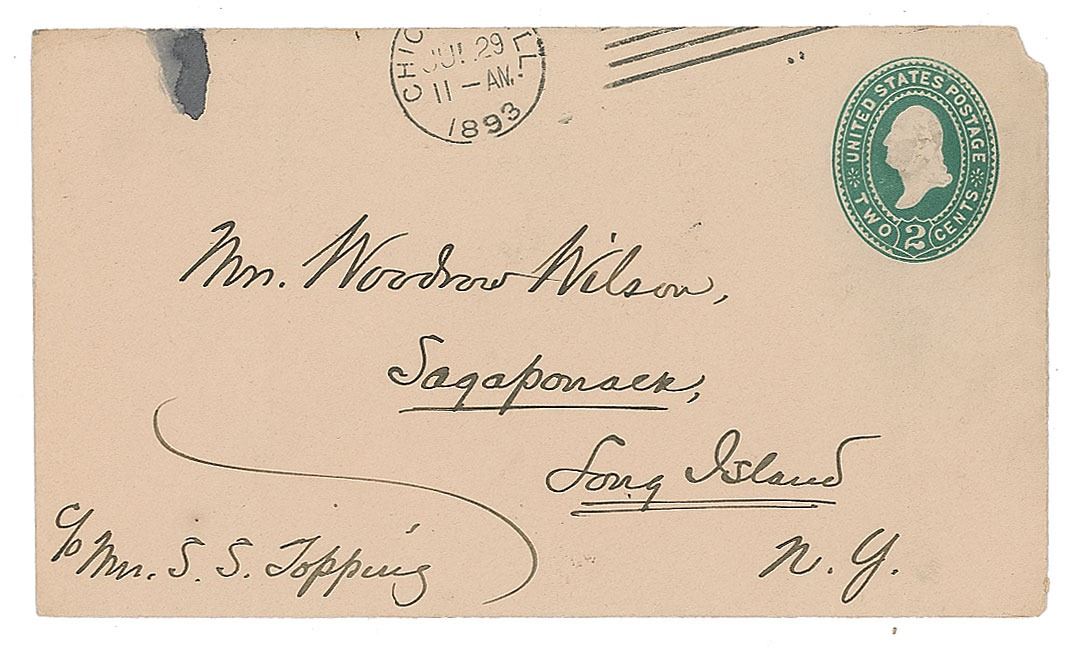 CHIC ILL.
JUL 29
11-AM.
1893
UNITED STATES POSTAGE
TWO 2 CENTS
Mr. Woodrow Wilson,
Sagaponack,
Long Island
N. Y.
c/o Mr. S. S. Topping